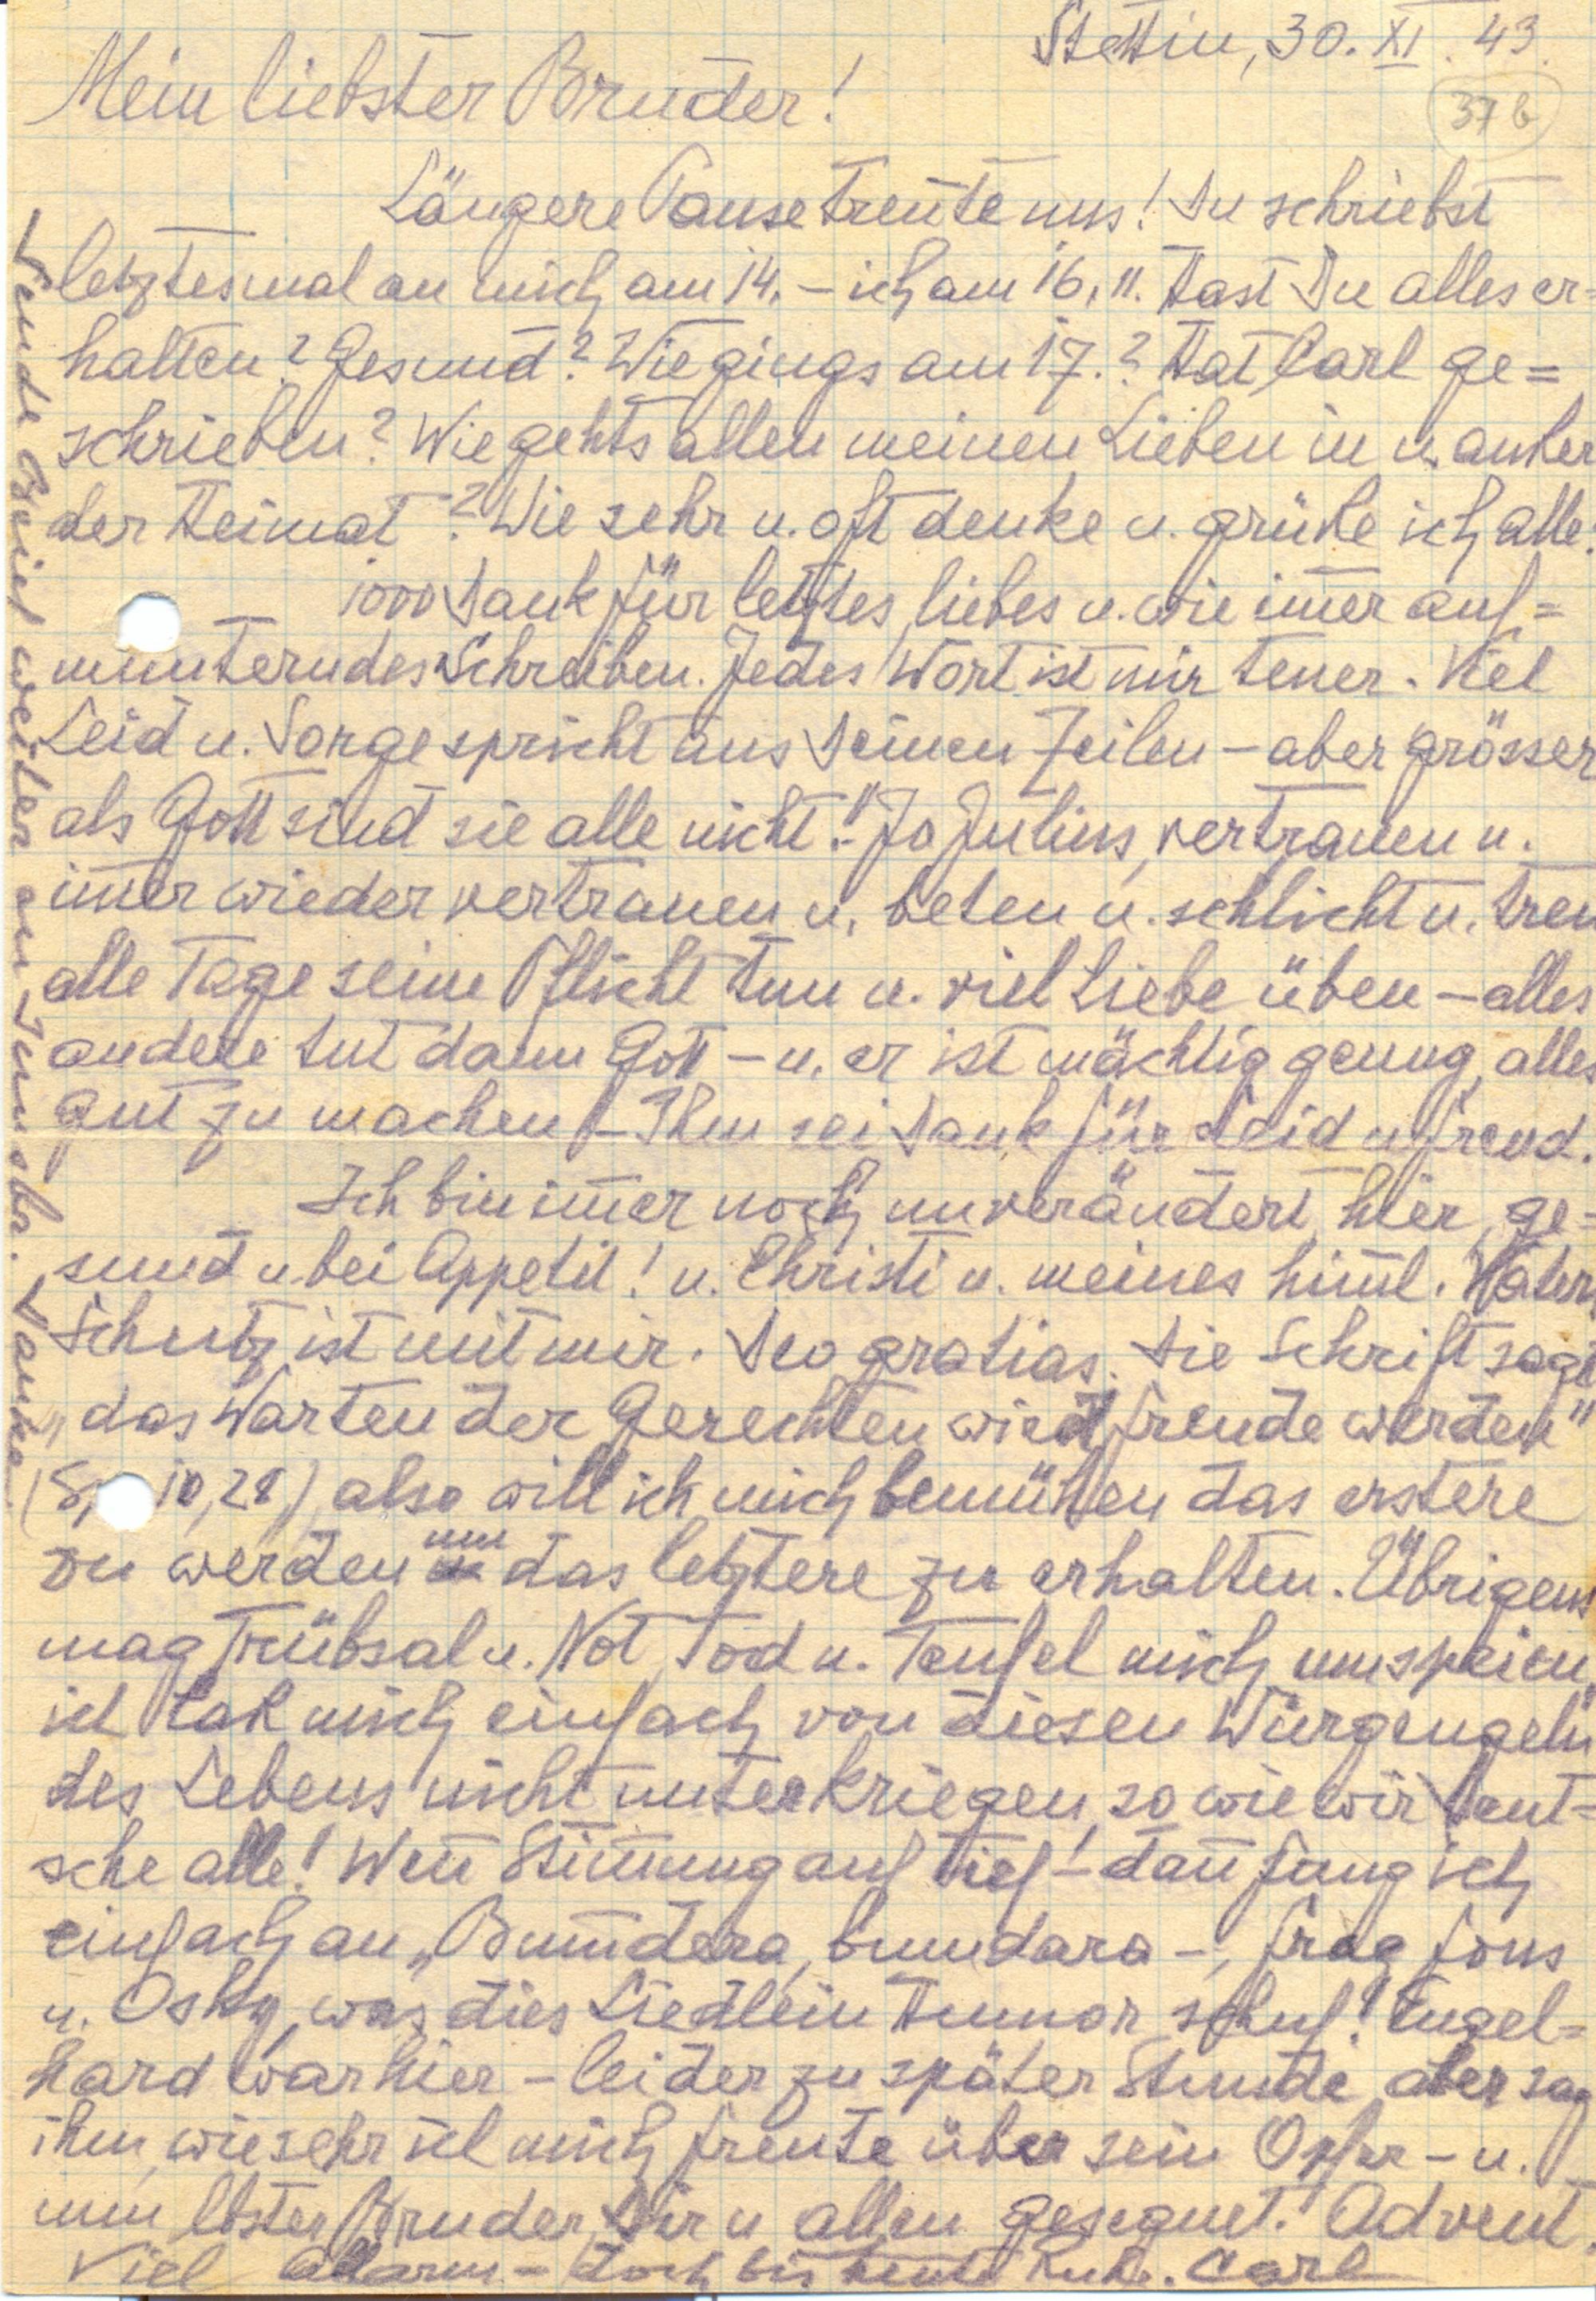 Stettin, 30. XI. 43.
37 b
Mein liebster Bruder!
Längere Pause trennte uns! Du schriebst
letztesmal an mich am 14. – ich am 16. 11. Hast Du alles er-
halten? Gesund? Wie gings am 17.? Hat Carl ge=
schrieben? Wie gehts allen meinen Lieben in u. außer
der Heimat? Wie sehr u. oft denke u. grüße ich alle.
1000 Dank für letztes, liebes u. wie im̄er auf=
munterndes Schreiben. Jedes Wort ist mir teuer. Viel
Leid u. Sorge spricht aus Deinen Zeilen – aber „grösser
als Gott sind sie alle nicht." Ja Julius, vertrauen u.
im̄er wieder vertrauen u. beten u. schlicht u. treu
alle Tage seine Pflicht tun u. viel Liebe üben – alles
andere tut dann Gott – u. er ist mächtig genug, alles
gut zu machen – Ihm sei Dank für Leid u Freud.
Ich bin im̄er noch unverändert hier, ge=
sund u. bei Appetit! u. Christi u. meines him̄l. Vaters
Schutz ist mit mir. Deo gratias. Die Schrift sagt
„das Warten der Gerechten wird Freude werden"
(Sp 10,28) also will ich mich bemühen das erstere
zu werden um das letztere zu erhalten. Übrigens
mag Trübsal u. Not, Tod u. Teufel mich umspeien,
ich laß mich einfach von diesen Würgengeln
des Lebens nicht unterkriegen, so wie wir Deut=
sche alle! Wen̄ Stim̄ung auf Tief – dan̄ fang ich
einfach an „Bum̄dera, bumdara –, frag Fons
u. Osky, was dies Liedlein Humor schuf! Engel=
hard war hier – leider zu später Stunde, aber sag
ihm, wie sehr ich mich freute über sein Opfer – u.
nun lbster Bruder, Dir u allen gesegnet. Advent.
Viel Alarm – doch bis heute Ruhe. Carl
Sende Brief weiter an Danke.